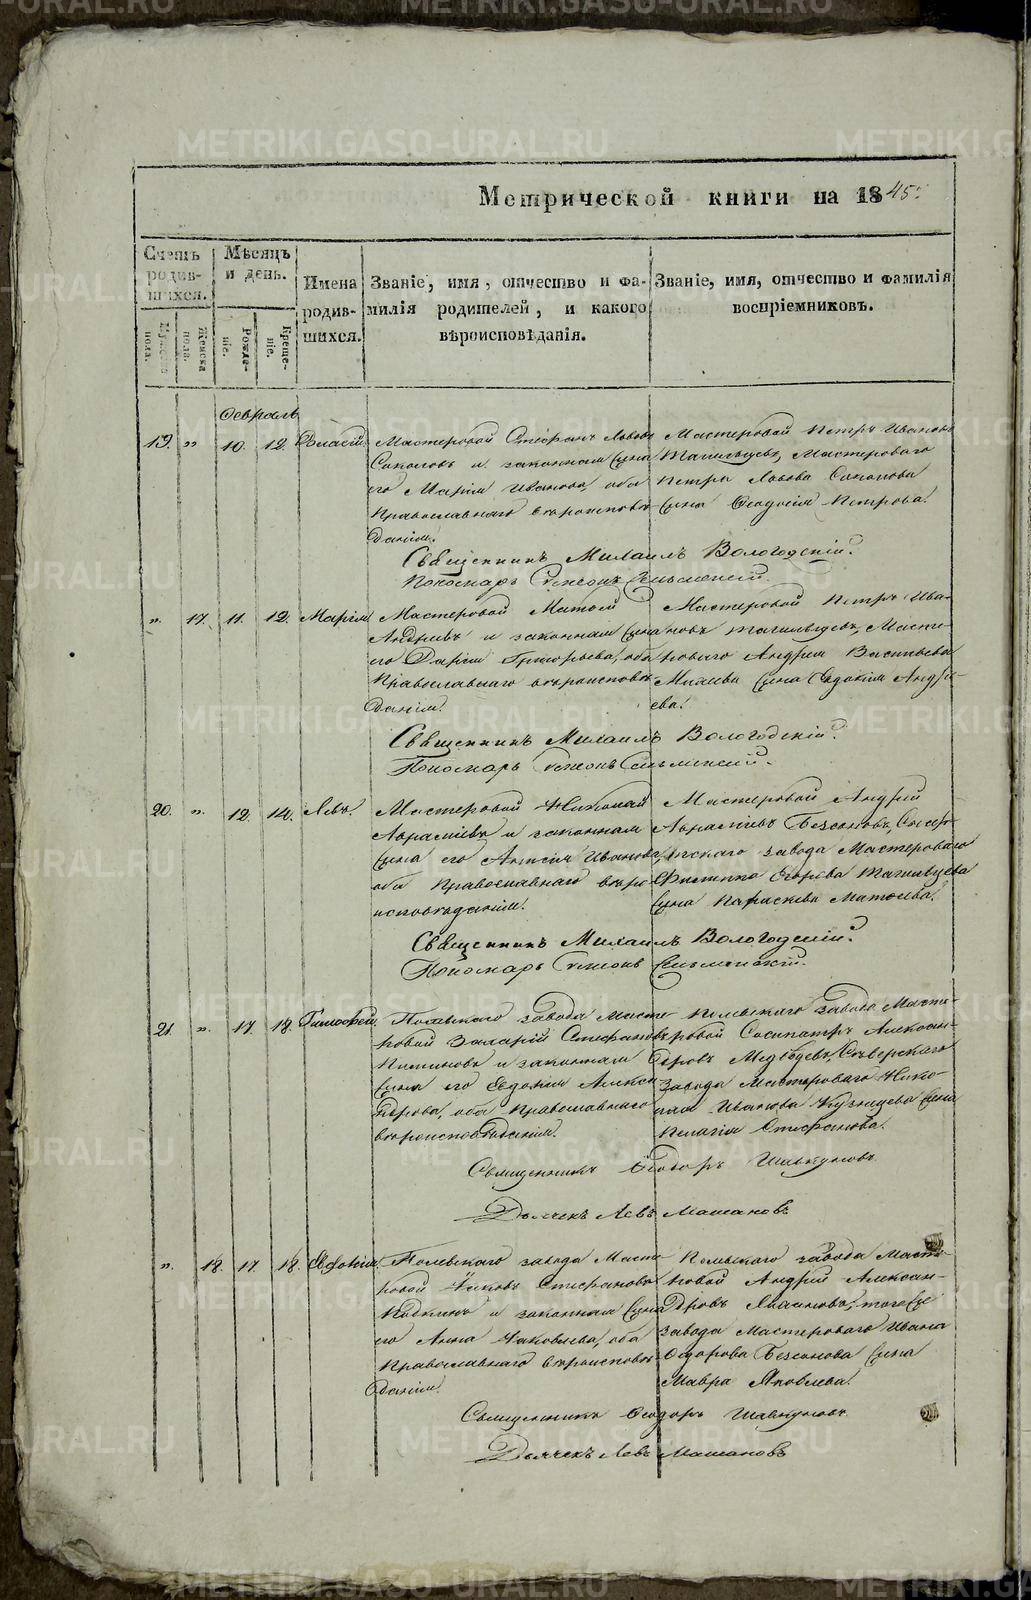 Метрической книги на 1845:
Счетъ родив-шихся.
Мѣсяцъ и день.
Имена родив-шихся.
Званіе, имя, отчество и фа-милія родителей, и какого вѣроисповѣданія.
Званіе, имя, отчество и фамилія воспріемниковъ.
Мужеска пола.
Женска пола.
Рожде-ніе.
Креще-ніе.
Февраль
19. " 10. 12. Власій
Мастеровой Стефанъ Львовъ
Соколовъ и законная жена
его Марія Иванова, оба
Православнаго вѣроисповѣ
данія.
Мастеровой Петръ Ивановъ
Тагильцевъ, Мастероваго
Петра Львова Соколова
жена Ѳеодосія Петрова.
Священникъ Михаилъ Вологодскій.
Пономарь Симеонъ
". 17. 11. 12. Марія
Мастеровой
и законная жена
его Дарія Григорьева, оба
Православнаго вѣроисповѣ
данія.
Мастеровой Петръ Ива-
новъ Тагильцевъ, Масте-
роваго Андрея Васильева
жена Евдокія Андре-
ева.
Священникъ Михаилъ Вологодскій.
Пономарь Симеонъ
20. ". 12. 14. Левъ.
Мастеровой Николай
Авраміевъ и законная
жена его Иванова,
оба Православнаго вѣро
исповѣданія.
Мастеровой Андрей
Авраміевъ Безсоновъ, Сысер-
тскаго завода Мастероваго
Филиппа Егорова Тагильцева
жена Параскева
Священникъ Михаилъ Вологодскій.
Пономарь Симеонъ
21. ". 17 18. Тимоѳей.
Полевскаго завода Масте
ровой Захарій Стефановъ
и законная
жена его Евдокія Алекса
ндрова, оба Православнаго
вѣроисповѣданія.
Полевскаго завода Масте-
ровой Сосипатръ Алексан-
дровъ Медвѣдевъ, Сѣверскаго
завода Мастероваго Нико-
лая Иванова Кузнецова жена
Пелагія Стефанова.
Священникъ Ѳеодоръ
Дьячекъ Левъ
". 18. 17. 18. Евдокія
Полевскаго завода Масте
ровой Яковъ Стефановъ
и законная жена
его Анна Яковлева, оба
Православнаго вѣроисповѣ
данія.
Полевскаго завода Масте-
ровой Андрей Алексан-
дровъ того же
завода Мастероваго Ивана
Ѳедорова Безсонова жена
Мавра Яковлева.
Священникъ Ѳеодоръ
Дьячекъ Левъ
METRIKI.GASO-URAL.RU